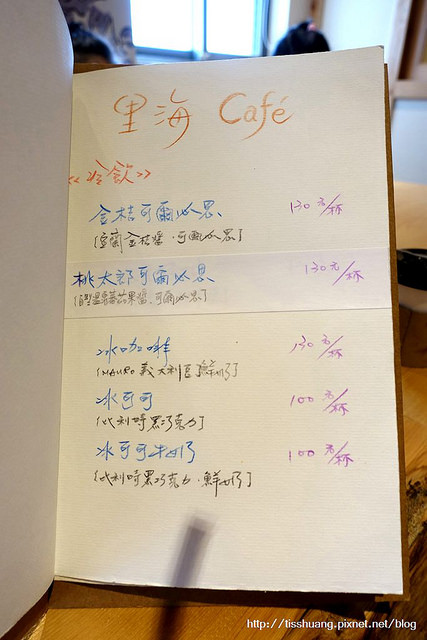 里海 Café
<<冷飲>>
金桔可爾必思 130元/杯
[宜蘭金桔醬、可爾必思]
桃太郎可爾必思 130元/杯
果醬、可爾必思]
冰咖啡 130元/杯
[MAURO義大利豆、鮮奶]
冰可可 100元/杯
[比利時黑巧克力]
冰可可牛奶 100元/杯
[比利時黑巧克力、鮮奶]
http://tisshuang.pixnet.net/blog